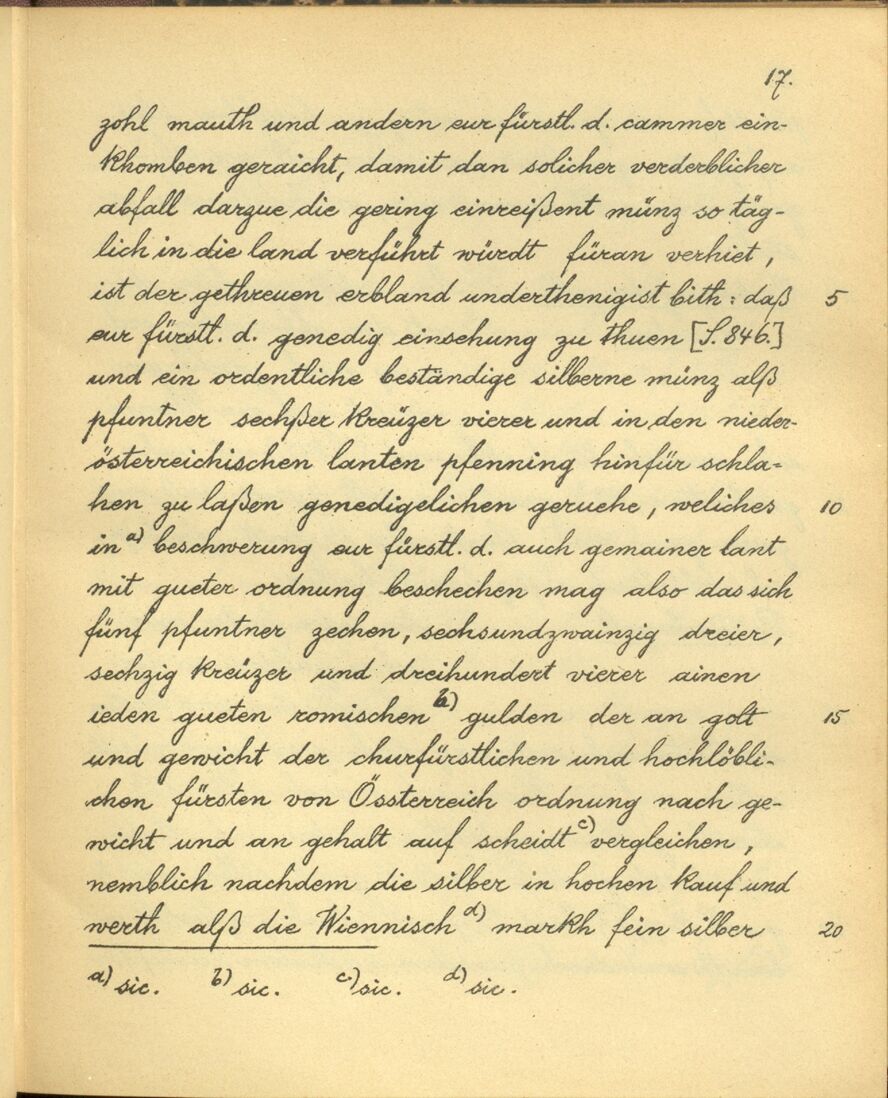 17.
zohl mauth und andern eur fürstl. d. cammer ein-
khomben geraicht, damit dan solicher verderblicher
abfall darzue die gering einreißent münz so täg-
lich in die land verführt würdt füran verhiet,
ist der gethreuen erbland underthenigist bith: daß 5
eur fürstl. d. genedig einsehung zu thuen [S. 846.]
und ein ordentliche beständige silberne münz alß
pfuntner sechßer kreüzer vierer und in den nieder-
österreichischen lanten pfenning hinfür schla-
hen zu laßen genedigelichen geruehe, weliches 10
in a) beschwerung eur fürstl. d. auch gemainer lant
mit gueter ordnung beschechen mag also das sich
fünf pfuntner zechen, sechsundzwainzig dreier,
sechzig kreüzer und dreihundert vierer ainen
ieden gueten romischen b) gulden der an golt 15
und gewicht der churfürstlichen und hochlöbli-
chen fürsten von Össterreich ordnung nach ge-
wicht und an gehalt auf scheidt c) vergleichen,
nemblich nachdem die silber in hochen kauf und
werth alß die Wiennisch d) markh fein silber 20
a) sic. b) sic. c) sic. d) sic.